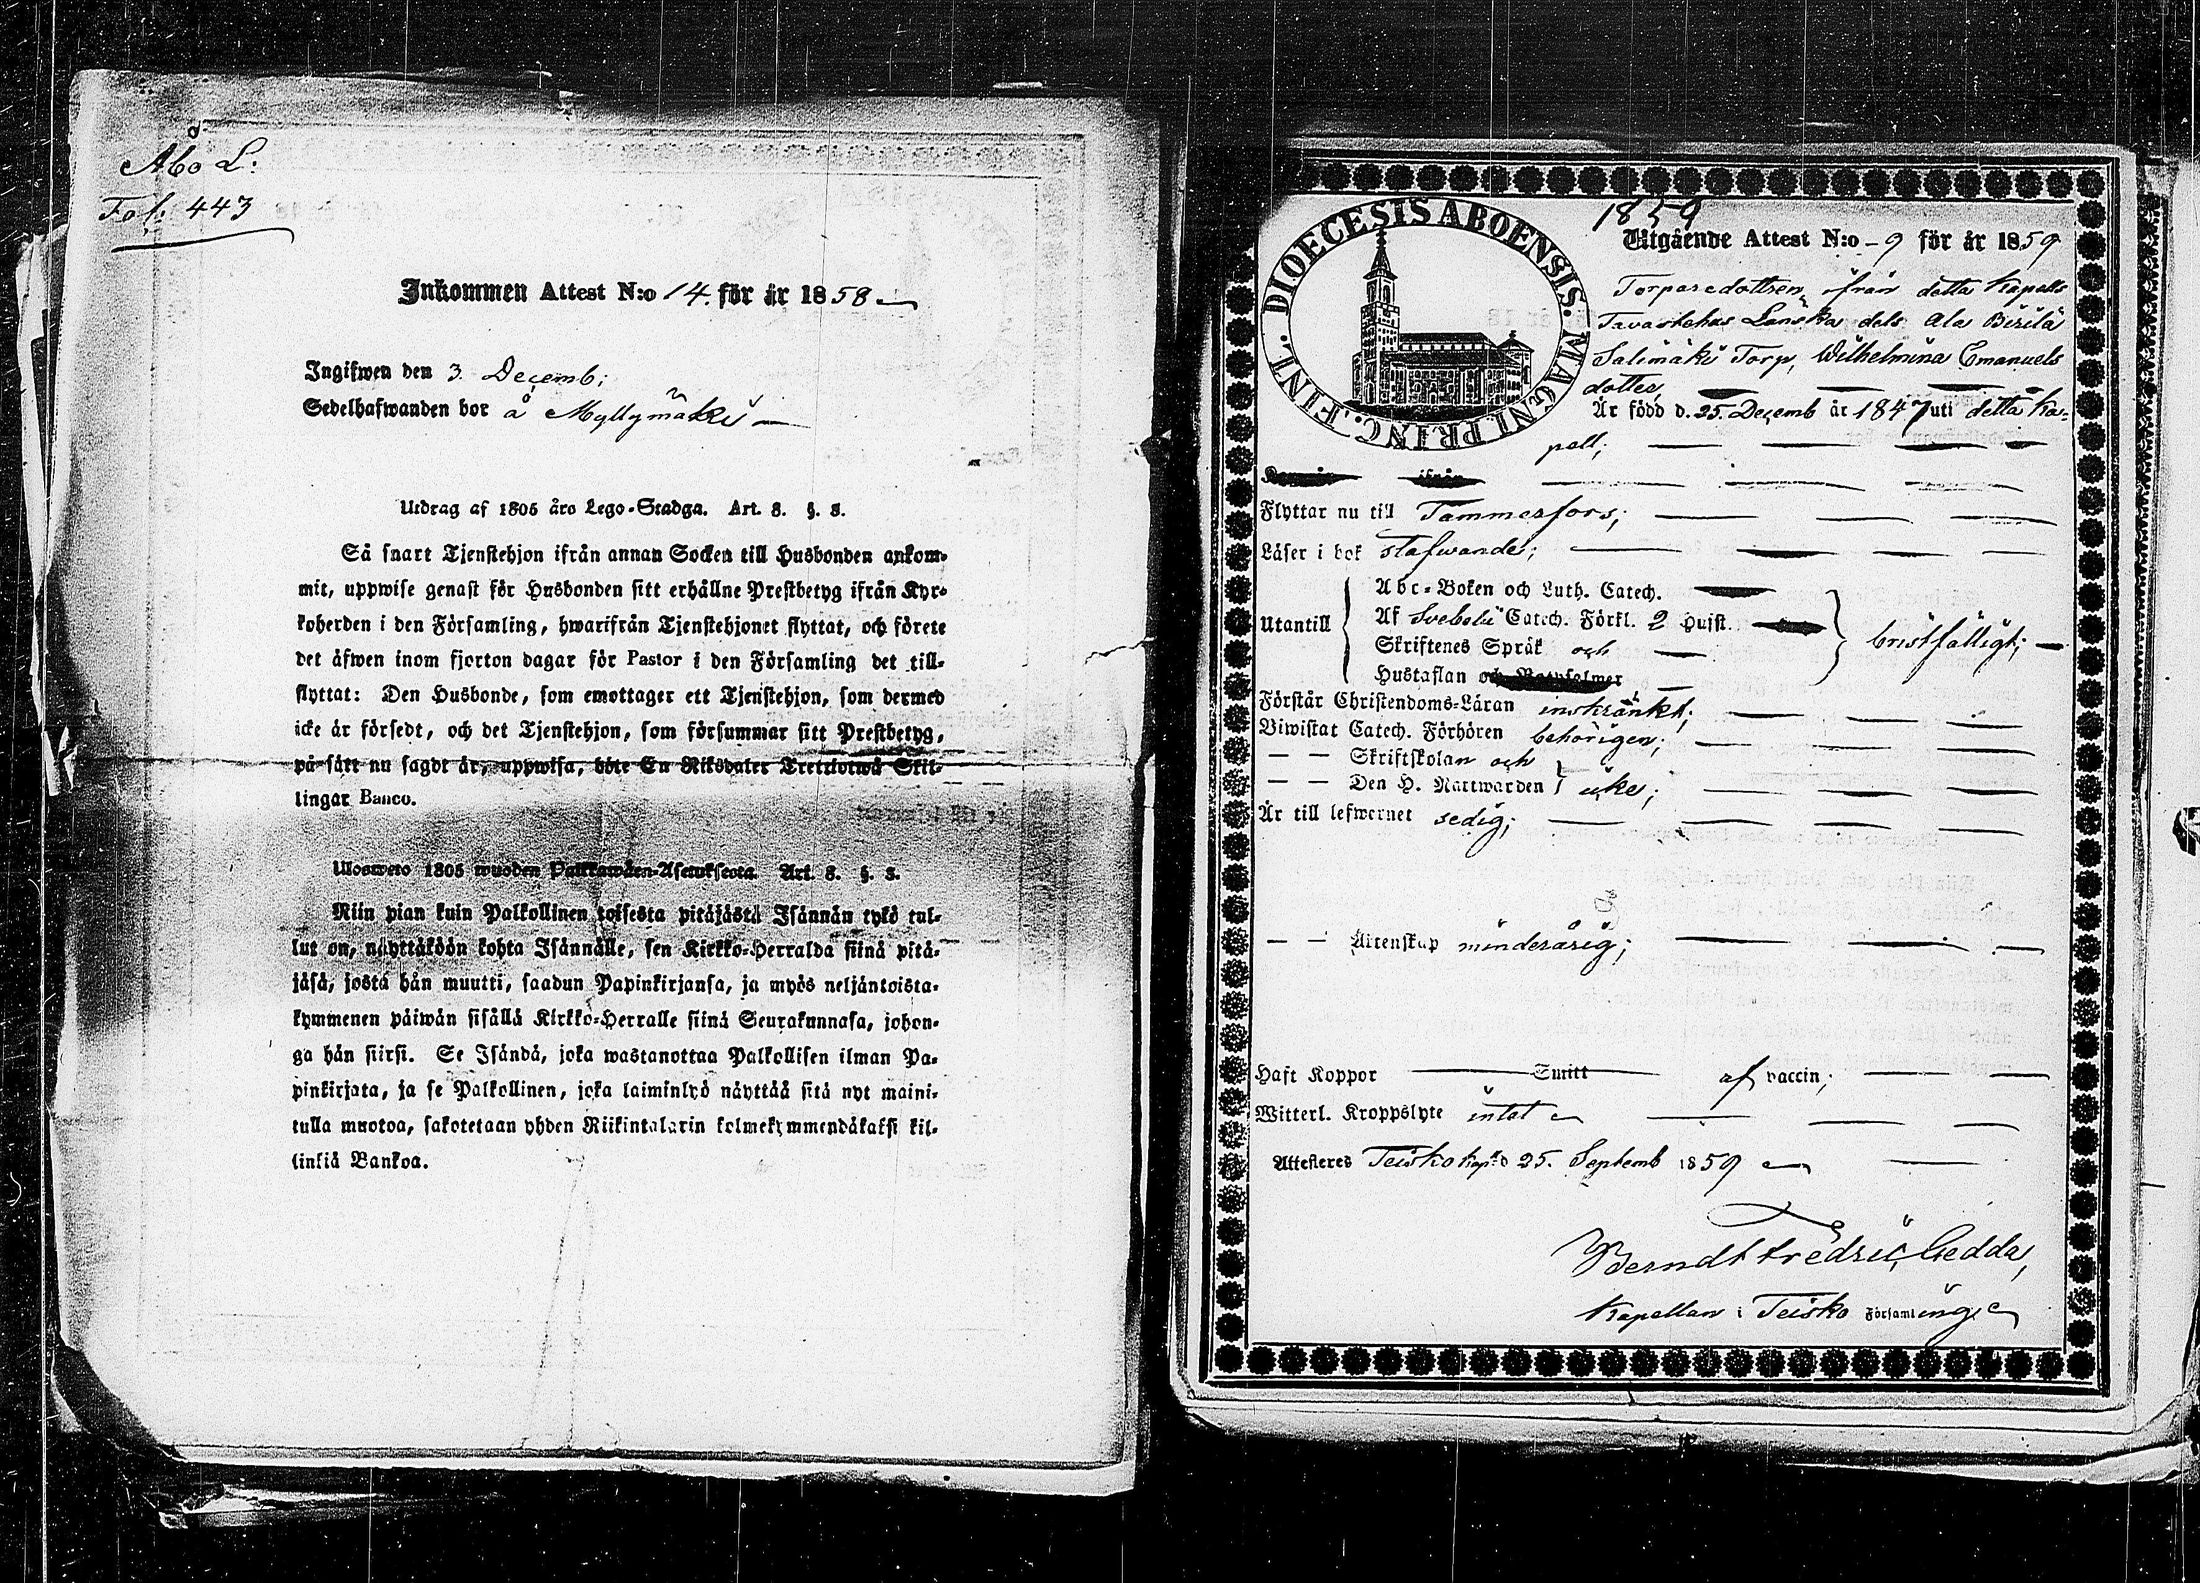 Åbo L:
Fol: 443
Inkommen Attest N:o 14. för år 1858
Ingifwen den 3. Decemb:
Sedelhafwanden bor å Myllymäki
Utdrag af 1805 års Lego-Stadga. Art. 8. §. 8.
Så snart Tjenstehjon ifrån annan Socken till Husbonden ankom-
mit, uppwise genast för Husbonden sitt erhållne Prestbetyg ifrån Kyr-
koherden i den Församling, hwarifrån Tjenstehjonet flyttat, och förete
det äfwen inom fjorton dagar för Pastor i den Församling det till-
flyttat: Den Husbonde, som emottager ett Tjenstehjon, som dermed
icke är försedt, och det Tjenstehjon, som försummar sitt Prestbetyg,
på sätt nu sagdt är, uppwisa, böte En Riksdaler Trettiotwå Skil-
lingar Banco.
Ulosweto 1805 wuoden Palkkawäen-Asetuksesta. Art. 8. §. 8.
Niin pian kuin Palkollinen toisesta pitäjästä Isännän tykö tul-
lut on, näyttäköön kohta Isännälle, sen Kirkko-Herralda siinä pitä-
jäsä, josta hän muutti, saadun Papinkirjansa, ja myös neljäntoista-
kymmenen päiwän sisällä Kirkko-Herralle siinä Seurakunnasa, johon-
ga hän siirsi. Se Isändä, joka wastanottaa Palkollisen ilman Pa-
pinkirjata, ja se Palkollinen, joka laiminlyö näyttää sitä nyt maini-
tulla muotoa, sakotetaan yhden Riikintalarin kolmekymmendäkaksi kil-
linkiä Bankoa.
DIOECESIS ABOENSIS. MAGNI PRINC. FINL.
1859
Utgående Attest N:o 9 för år 1859
Torparedottren, ifrån detta Kapells
Tavastehus Länska dels Ala Birilä
Salimäki Torp, Wilhelmina Emanuels
dotter,
Är född d. 25. Decemb år 1847 uti detta Ka-
pell;
Flyttar nu till Tammerfors;
Läser i bok stafwande;
Utantill
Abc-Boken och Luth. Catech.
Af Svebelii Catech. Förkl. 2 Hufst.
Skriftenes Språk och
Hustaflan och Botpsalmer
bristfälligt;
Förstår Christendoms-Läran inskränkt;
Biwistat Catech. Förhören behörigen;
— — Skriftskolan och
— — Den H. Nattwarden icke;
Är till lefwernet sedig;
— — Äktenskap minderårig;
Haft Koppor Smitt af vaccin;
Witterl. Kroppslyte intet
Attesteres Teisko kap:d 25. Septemb 1859
Berndt Fredric Gedda,
Kapellan i Teisko Församling